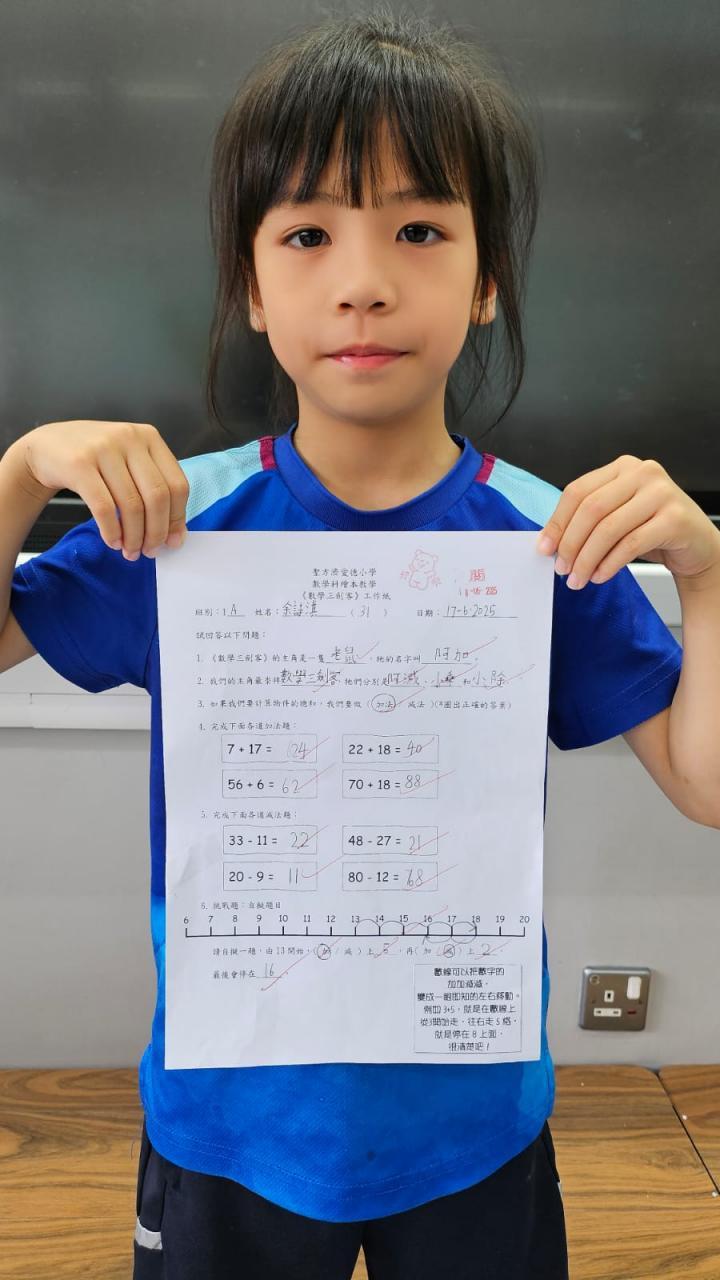 聖方濟愛德小學
數學科繪本教學
《數學三劍客》工作紙
班別：1A 姓名：余詩淇 （ 31 ） 日期：17-6-2025
試回答以下問題：
1. 《數學三劍客》的主角是一隻老鼠，牠的名字叫阿加。
2. 我們的主角最崇拜數學三劍客，牠們分別是阿減、小乘和小除。
3. 如果我們要計算物件的總和，我們要做（ 加法 / 減法 ）(*圈出正確的答案)
4. 完成下面各道加法題：
7 + 17 = 24 22 + 18 = 40
56 + 6 = 62 70 + 18 = 88
5. 完成下面各道減法題：
33 - 11 = 22 48 - 27 = 21
20 - 9 = 11 80 - 12 = 68
6. 挑戰題：自擬題目
6 7 8 9 10 11 12 13 14 15 16 17 18 19 20
請自擬一題，由13開始，（加 / 減 ）上 5 ，再（ 加 / 減 ）上 2 。
最後會停在 16 。
數線可以把數字的
加加減減，
變成一眼即知的左右移動。
例如 3+5，就是在數線上
從3開始走，往右走 5 格，
就是停在 8 上面，
很清楚吧！